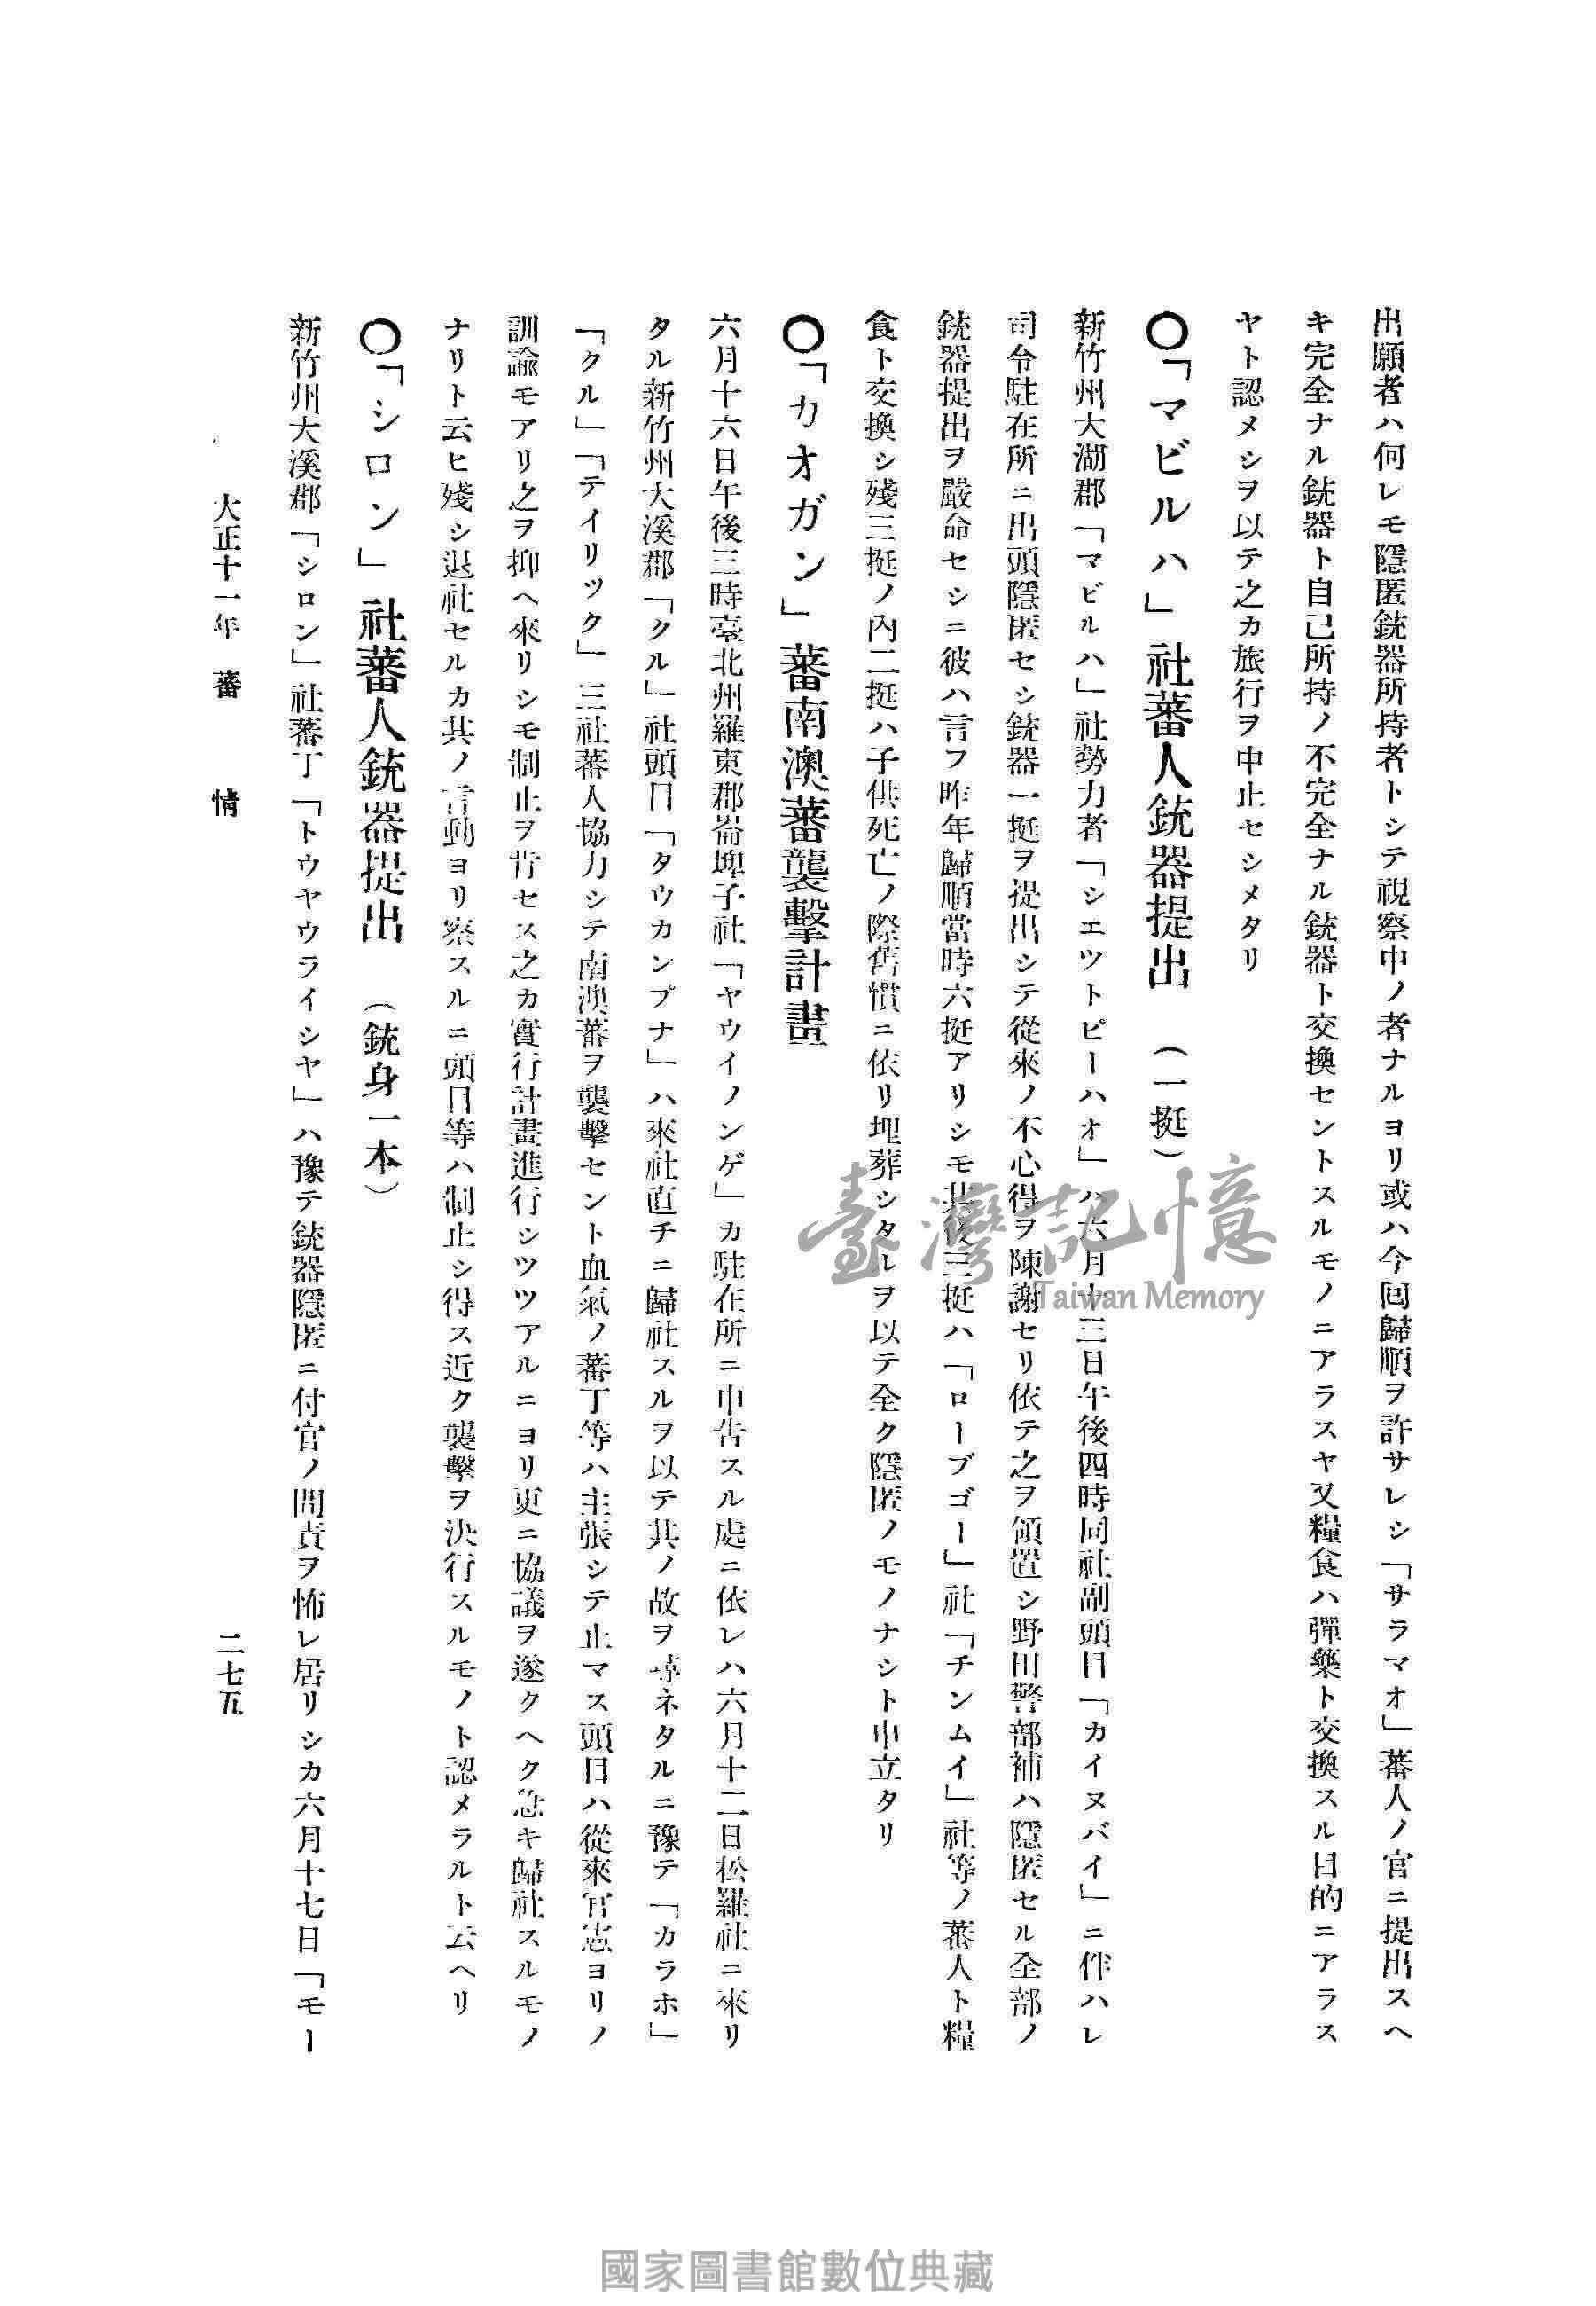 出願者ハ何レモ隱匿銃器所持者トシテ視察中ノ者ナルヨリ或ハ今回歸順ヲ許サレシ「サラマオ」蕃人ノ官ニ提出スヘ
キ完全ナル銃器ト自己所持ノ不完全ナル銃器ト交換セントスルモノニアラスヤ又糧食ハ彈藥ト交換スル目的ニアラス
ヤト認メシヲ以テ之カ旅行ヲ中止セシメタリ
〇「マビルハ」社蕃人銃器提出 （一挺）
新竹州大湖郡「マビルハ」社勢力者「シエツトピーハオ」ハ六月十三日午後四時同社副頭目「カイヌバイ」ニ伴ハレ
司令駐在所ニ出頭隱匿セシ銃器一挺ヲ提出シテ從來ノ不心得ヲ陳謝セリ依テ之ヲ領置シ野田警部補ハ隱匿セル全部ノ
銃器提出ヲ嚴命セシニ彼ハ言フ昨年歸順當時六挺アリシモ其後三挺ハ「ローブゴー」社「チンムイ」社等ノ蕃人ト糧
食ト交換シ殘三挺ノ內二挺ハ子供死亡ノ際舊慣ニ依リ埋葬シタルヲ以テ全ク隱匿ノモノナシト申立タリ
〇「カオガン」蕃南澳蕃襲擊計畫
六月十六日午後三時臺北州羅東郡崙埤子社「ヤウイノンゲ」カ駐在所ニ申告スル處ニ依レハ六月十二日松羅社ニ來リ
タル新竹州大溪郡「クル」社頭目「タウカンプナ」ハ來社直チニ歸社スルヲ以テ其ノ故ヲ尋ネタルニ豫テ「カラホ」
「クル」「テイリツク」三社蕃人協力シテ南澳蕃ヲ襲擊セント血氣ノ蕃丁等ハ主張シテ止マス頭目ハ從來官憲ヨリノ
訓諭モアリ之ヲ抑ヘ來リシモ制止ヲ肯セス之カ實行計畫進行シツツアルニヨリ更ニ協議ヲ遂クヘク急キ歸社スルモノ
ナリト云ヒ殘シ退社セルカ其ノ言動ヨリ察スルニ頭目等ハ制止シ得ス近ク襲擊ヲ決行スルモノト認メラルト云ヘリ
〇「シロン」社蕃人銃器提出 （銃身一本）
新竹州大溪郡「シロン」社蕃丁「トウヤウライシヤ」ハ豫テ銃器隱匿ニ付官ノ問責ヲ怖レ居リシカ六月十七日「モー
大正十一年 蕃 情 二七五
臺灣記憶
Taiwan Memory
國家圖書館數位典藏